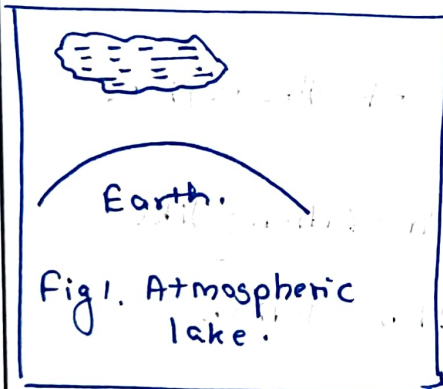 Earth.
Fig 1. Atmospheric
lake.